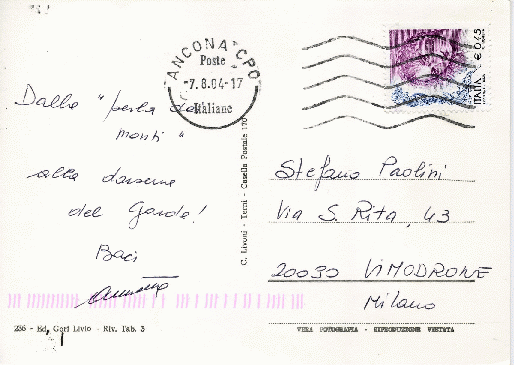 ANCONA CPO
Poste
-7.8.04-17
Italiane
ITALIA € 0,45
Dalla "perla dei
monti"
alla darsena
del Garda!
Baci
C. Livoni - Terni - Casella Postale 170
Stefano Paolini
Via S. Rita, 43
20090 VIMODRONE
Milano
236 - Ed. Gori Livio - Riv. Tab. 3
VERA FOTOGRAFIA - RIPRODUZIONE VIETATA